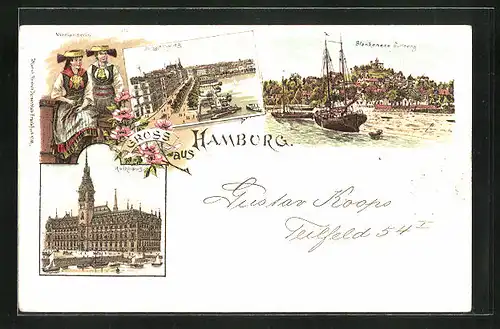 Vierländerin
Blankenese Süllberg
GRUSS
AUS
HAMBURG.
Rathhaus
Gustav Koops
Teilfeld 54 I